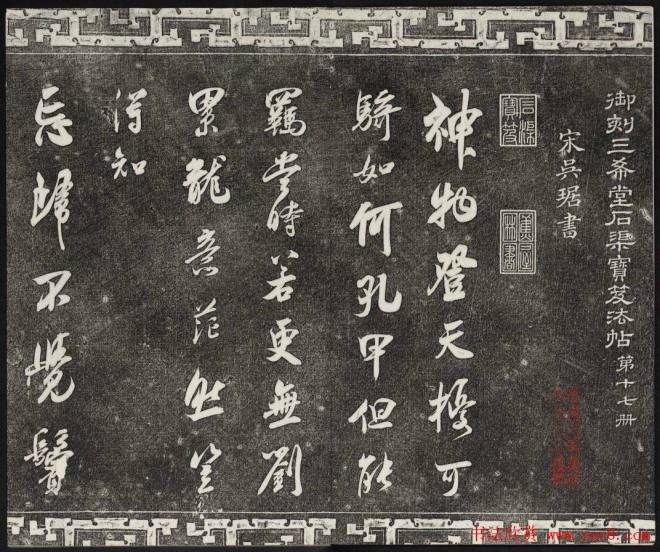 御刻三希堂石渠寶笈法帖 第十七册
宋吳琚書
石渠寶笈
神物登天擾可
騎如何孔甲但能
羈當時若更無劉
累龍意茫然豈
得知
忘歸不覺鬢
书法欣赏 www.yac8.com